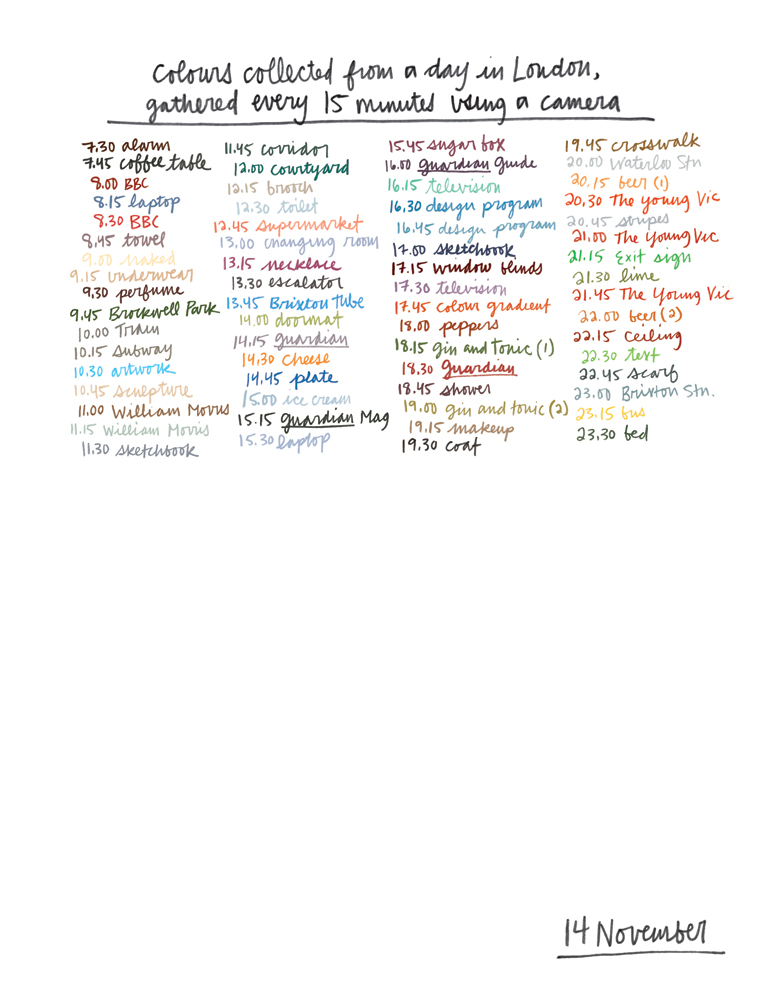 Colours collected from a day in London,
gathered every 15 minutes using a camera
7.30 alarm
7.45 coffee table
8.00 BBC
8.15 laptop
8.30 BBC
8.45 towel
9.00 naked
9.15 underwear
9.30 perfume
9.45 Brockwell Park
10.00 Train
10.15 subway
10.30 artwork
10.45 sculpture
11.00 William Morris
11.15 William Morris
11.30 sketchbook
11.45 corridor
12.00 courtyard
12.15 brooch
12.30 toilet
12.45 supermarket
13.00 changing room
13.15 necklace
13.30 escalator
13.45 Brixton Tube
14.00 doormat
14.15 guardian
14.30 cheese
14.45 plate
15.00 ice cream
15.15 guardian Mag
15.30 laptop
15.45 sugar box
16.00 guardian guide
16.15 television
16.30 design program
16.45 design program
17.00 sketchbook
17.15 window blinds
17.30 television
17.45 colour gradient
18.00 peppers
18.15 gin and tonic (1)
18.30 guardian
18.45 shower
19.00 gin and tonic (2)
19.15 makeup
19.30 coat
19.45 crosswalk
20.00 Waterloo Stn
20.15 beer (1)
20.30 The Young Vic
20.45 stripes
21.00 The Young Vic
21.15 Exit sign
21.30 lime
21.45 The Young Vic
22.00 beer (2)
22.15 ceiling
22.30 text
22.45 scarf
23.00 Brixton Stn.
23.15 bus
23.30 bed
14 November